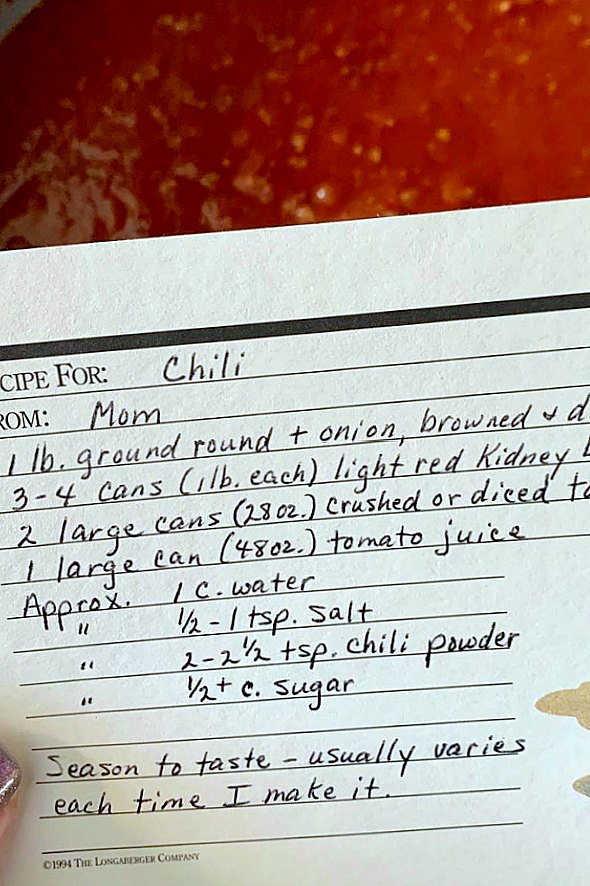 CIPE FOR: Chili
ROM: Mom
1 lb. ground round + onion, browned & d
3-4 cans (1lb. each) light red Kidney b
2 large cans (28oz.) crushed or diced to
1 large can (48oz.) tomato juice
Approx. 1 c. water
" 1/2 - 1 tsp. salt
" 2 - 2 1/2 tsp. chili powder
" 1/2+ c. sugar
Season to taste - usually varies
each time I make it.
©1994 THE LONGABERGER COMPANY